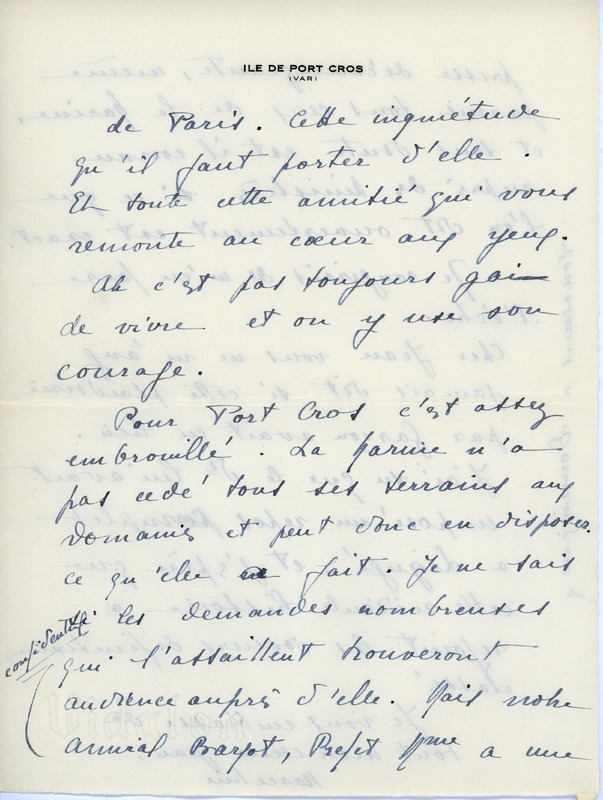 ILE DE PORT CROS
(VAR)
de Paris. Cette inquiétude
qu'il faut porter d'elle.
Et toute cette amitié qui vous
remonte au cœur aux yeux.
Ah c'est pas toujours gai
de vivre et on y use son
courage.
Pour Port Cros c'est assez
embrouillé. La Marine n'a
pas cedé tous ses terrains aux
Domaines et peut donc en disposer.
ce qu'elle fait. Je ne sais
si les demandes nombreuses
confidentiel
qui l'assaillent trouveront
audience auprès d'elle. Mais notre
Amiral, Prefet Mme a une